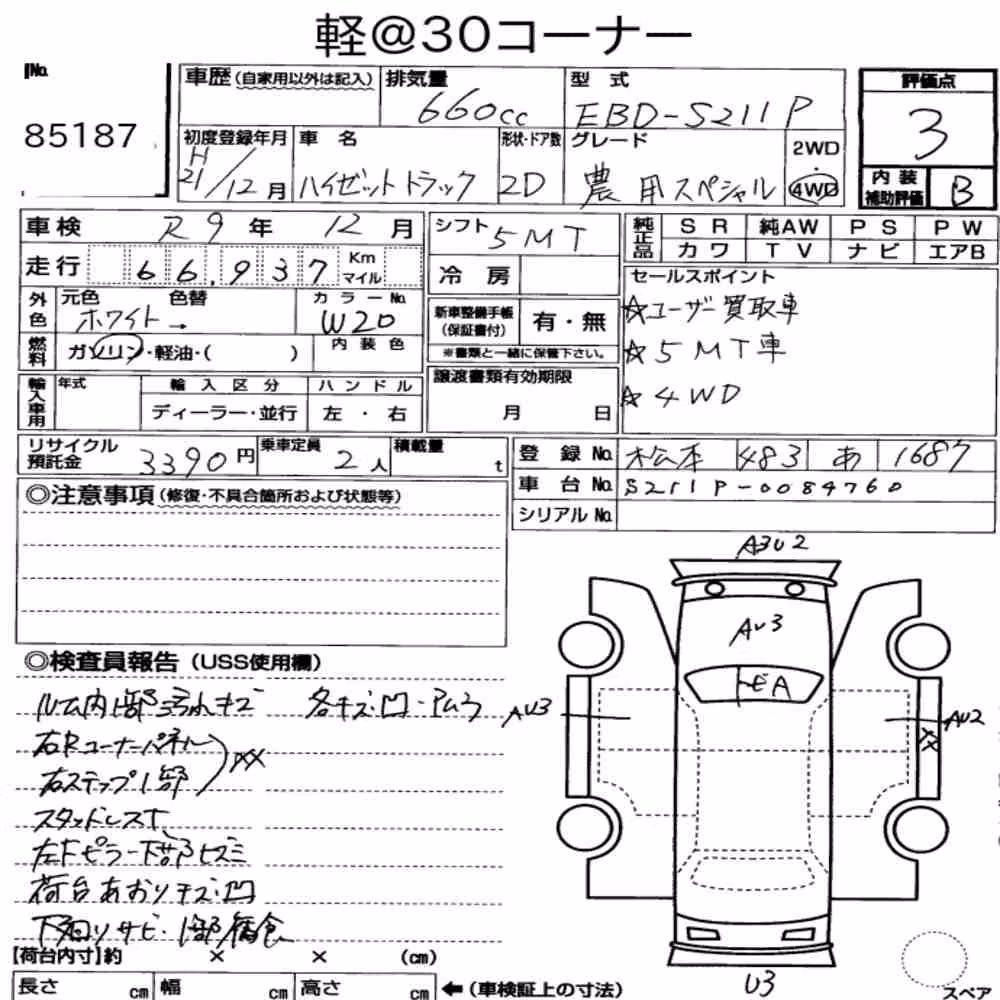 軽@30コーナー
No.
85187
車歴(自家用以外は記入)
排気量
660cc
型式
EBD-S211P
評価点
3
初度登録年月
H21/12月
車名
ハイゼットトラック
形状・ドア数
2D
グレード
農用スペシャル
2WD
4WD
内装
補助評価
B
車検 R9年 12月
シフト 5MT
純正品
SR 純AW PS PW
カワ TV ナビ エアB
走行 66,937 Km マイル
冷房
セールスポイント
☆ユーザー買取車
☆5MT車
☆4WD
外色
元色 色替
ホワイト→
カラーNo.
W20
新車整備手帳
(保証書付)
有・無
※書類と一緒に保管下さい。
燃料
ガソリン・軽油・( )
内装色
輸入車用
年式
輸入区分
ディーラー・並行
ハンドル
左・右
譲渡書類有効期限
月 日
リサイクル
預託金
3390円
乗車定員
2人
積載量
t
登録No. 松本 483 あ 1687
車台No. S211P-0084760
シリアルNo.
◎注意事項(修復・不具合箇所および状態等)
◎検査員報告(USS使用欄)
ルーム内1部汚れキズ 各キズ・凹・アムラ
右Rコーナーパネル
右ステップ1部
XX
スタッドレス
左Fピラー下部ヒズミ
荷台あおりキズ・凹
下回りサビ・1部腐食
【荷台内寸】約 × × (cm)
長さ cm 幅 cm 高さ cm ←(車検証上の寸法)
A3U2
AU3
トビA
AU3
AU2
XX
U3
スペア